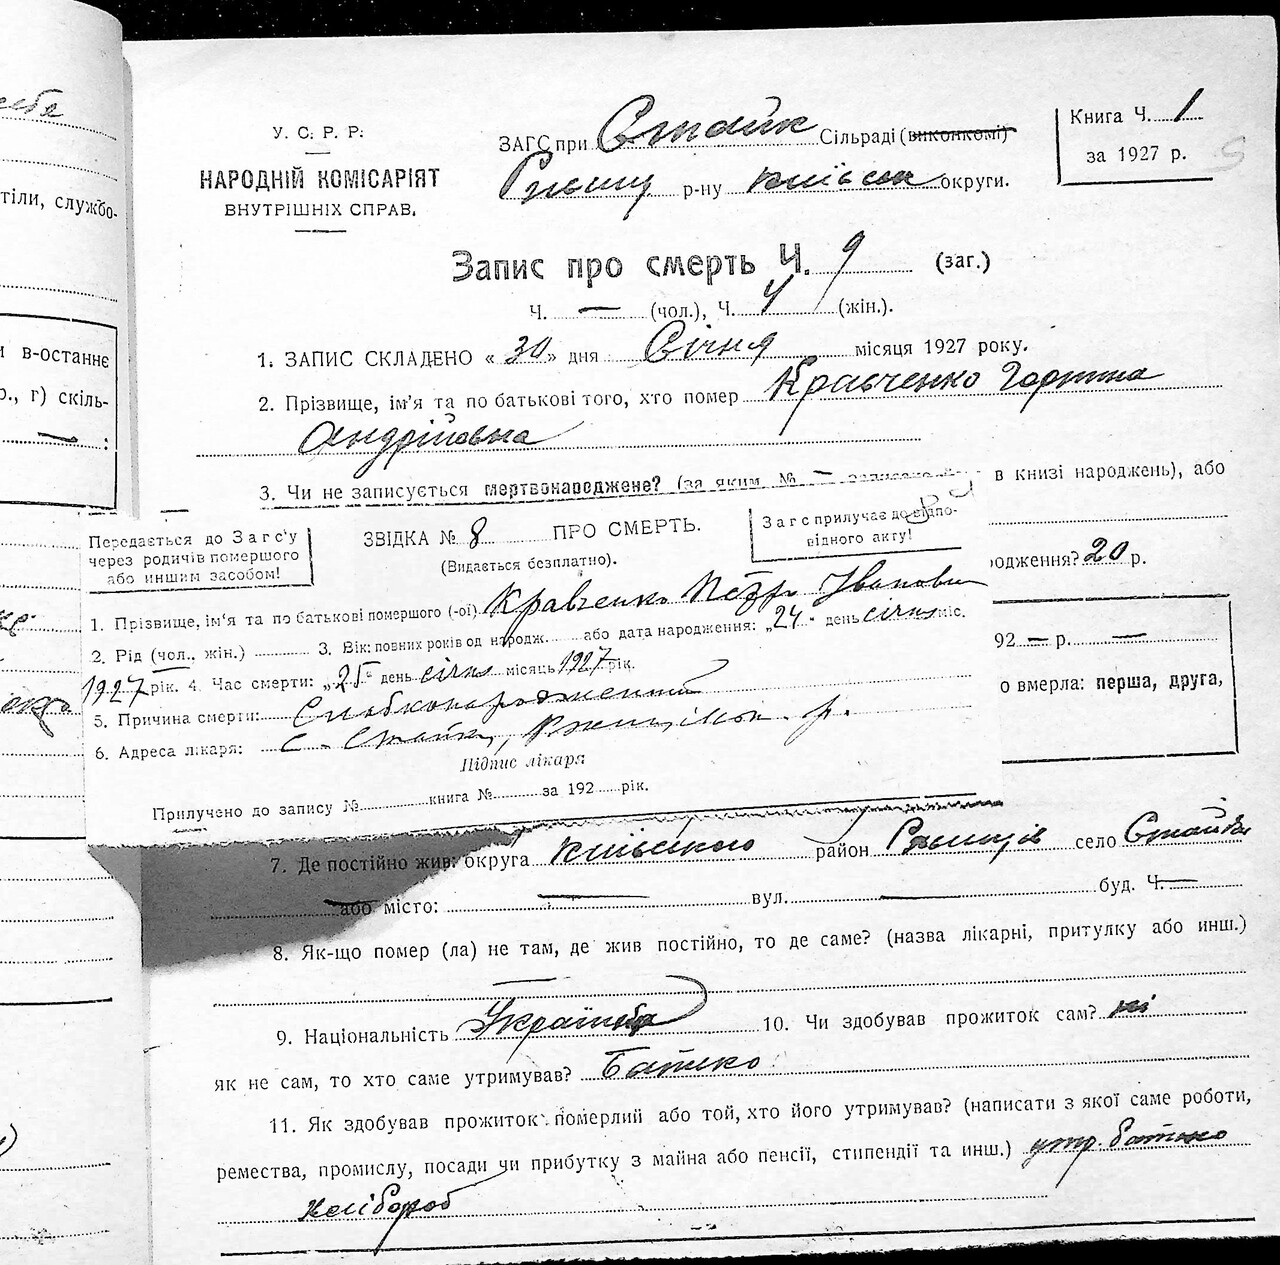 У. С. Р. Р.
НАРОДНІЙ КОМІСАРІЯТ
ВНУТРІШНІХ СПРАВ.
ЗАГС при Стайк Сільраді (виконкомі)
р-ну Київськ округи.
Книга Ч. 1
за 1927 р.
Запис про смерть Ч. 9 (заг.)
Ч. — (чол.), Ч. 4 (жін.).
1. ЗАПИС СКЛАДЕНО « 30 » дня Січня місяця 1927 року.
2. Прізвище, ім'я та по батькові того, хто помер Кравченко Горпина
Андріївна
3. Чи не записується мертвонароджене? (за яким № — в книзі народжень), або
одження? 20 р.
92 — р. —
о вмерла: перша, друга,
Передається до Загс'у
через родичів помершого
або иншим засобом!
ЗВІДКА № 8 ПРО СМЕРТЬ.
(Видається безплатно).
Загс прилучає до відпо-
відного акту!
1. Прізвище, ім'я та по батькові помершого (-ої) Кравченко Петро Іванович
2. Рід (чол., жін.) 3. Вік: повних років од народж. або дата народження: „24" день січня міс.
1927 рік. 4. Час смерти: „25" день січня місяць 1927 рік.
5. Причина смерти: Слабконароджений
6. Адреса лікаря: с. Стайки, р.
Підпис лікаря
Прилучено до запису № книга № за 192 рік.
7. Де постійно жив: округа Київського район Ржищів село Стайки
або місто: — вул. — буд. Ч. —
8. Як-що помер (ла) не там, де жив постійно, то де саме? (назва лікарні, притулку або инш.)
—
9. Національність Українка 10. Чи здобував прожиток сам? ні
як не сам, то хто саме утримував? Батько
11. Як здобував прожиток померлий або той, хто його утримував? (написати з якої саме роботи,
ремества, промислу, посади чи прибутку з майна або пенсії, стипендії та инш.) утр. батько
хлібороб
тіли, службо-
и в-останнє
р., г) скіль-
— :